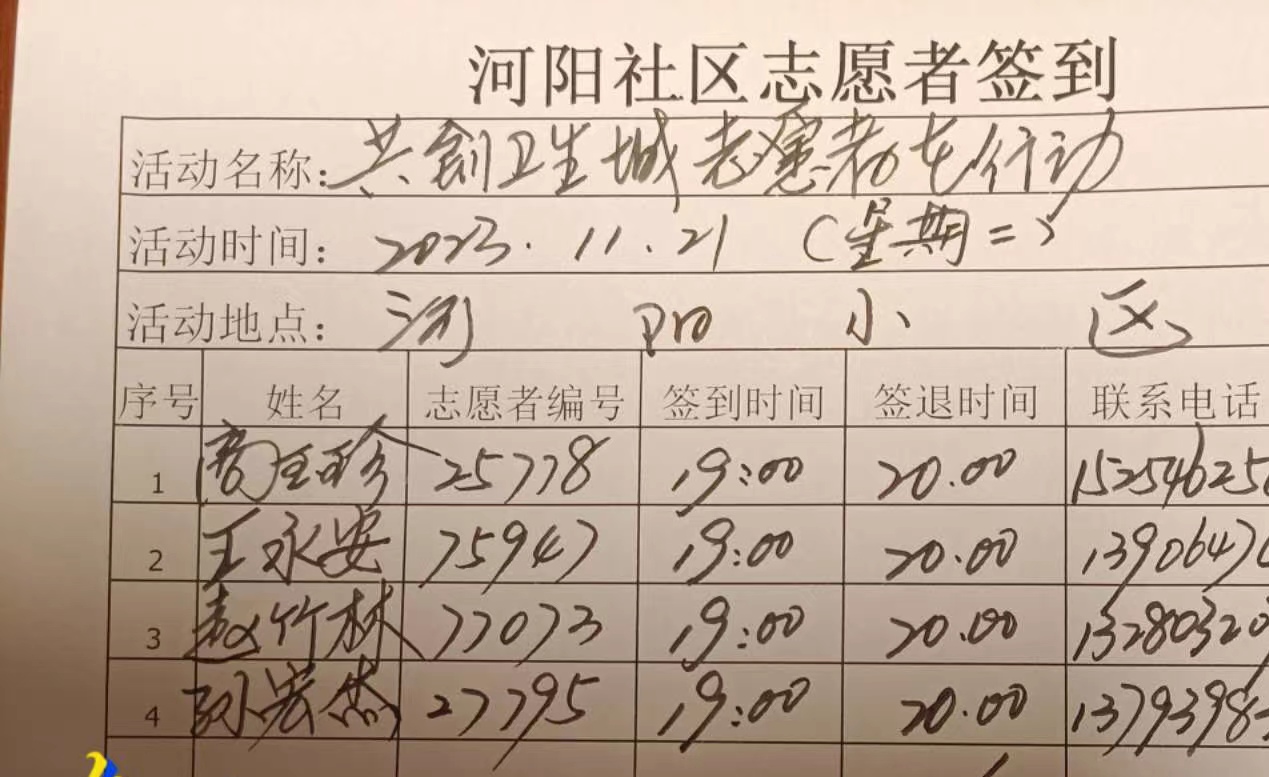 河阳社区志愿者签到
活动名称:共创卫生城志愿者在行动
活动时间: 2023.11.21 (星期二)
活动地点: 河 阳 小 区
序号 姓名 志愿者编号 签到时间 签退时间 联系电话
1 商玉珍 25778 19:00 20.00 152546250
2 王永安 75947 19:00 20.00 13906470
3 赵竹林 77073 19:00 20.00 13280320
4 孙宏杰 27795 19:00 20.00 13793983